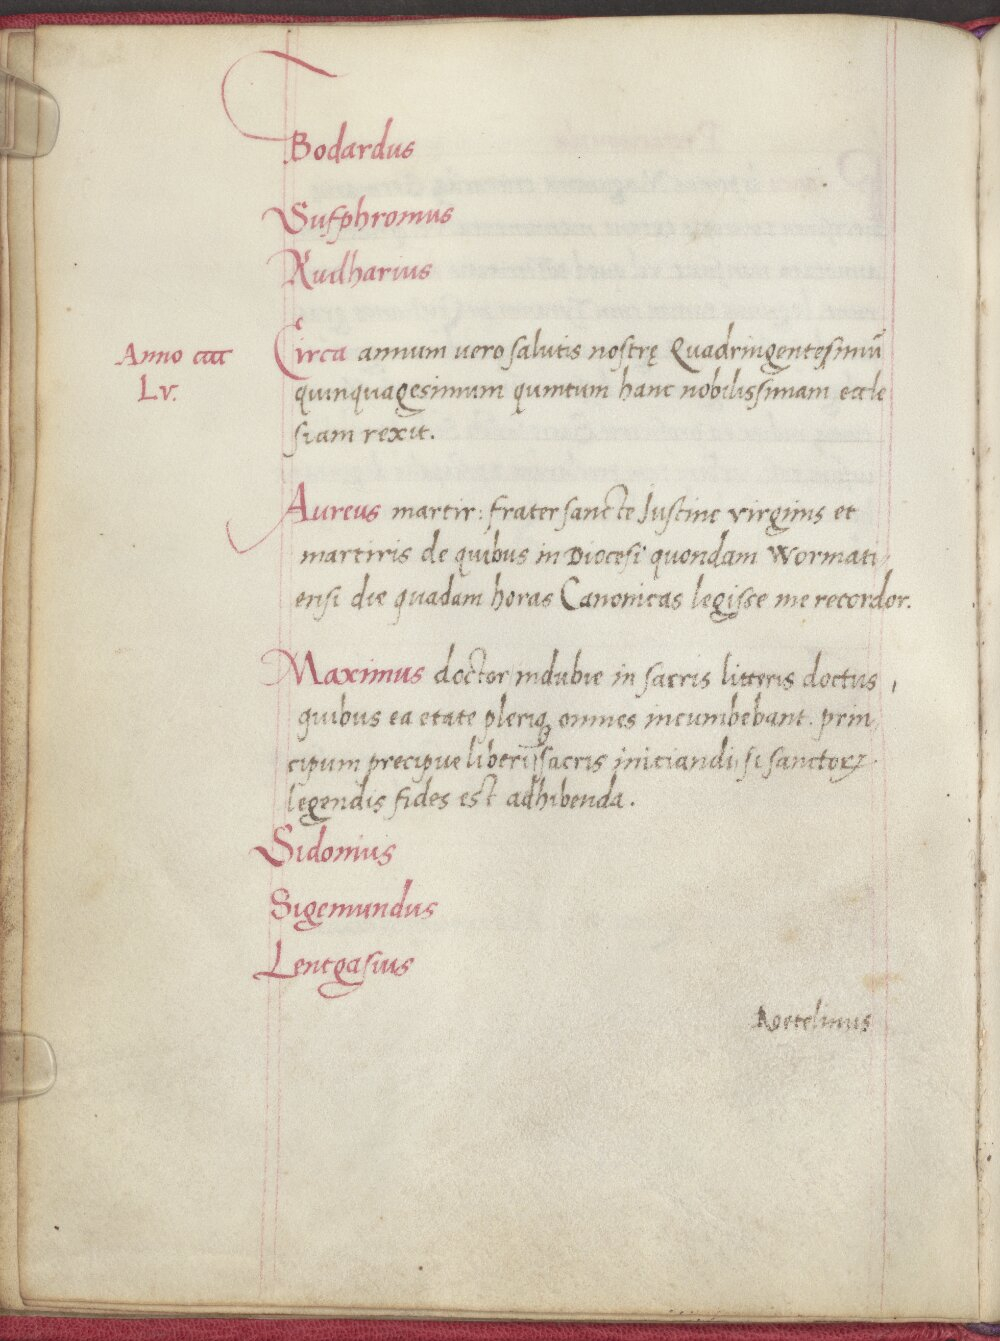 Bodardus
Sufphromus
Rudharius
Anno cccc
Lv.
Circa annum vero salutis nostrę Quadringentesimū
quinquagesimum quintum hanc nobilissimam eccle
siam rexit.
Aureus martir: frater sancte Justine virginis et
martiris de quibus in Diocesi quondam Wormati
ensi die quadam horas Canonicas legisse me recordor.
Maximus doctor indubie in sacris litteris doctus,
quibus ea etate pleriqꝫ omnes incumbebant. prin
cipum precipue liberi, sacris iniciandi, si sanctoꝝ
legendis fides est adhibenda.
Sidonius
Sigemundus
Lentgasius